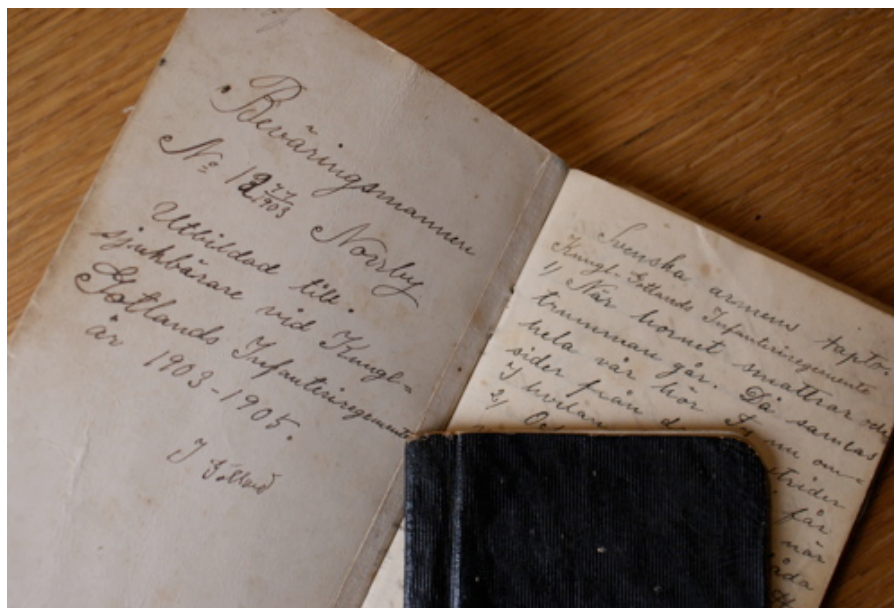 Beväringsmannen
No 12 77/1903 Norrby
Utbildad till
sjukbärare vid Kungl.
Gotlands Infanteriregemente
år 1903-1905.
Svenska armens tapto.
Kungl. Gotlands Infanteriregemente
1) När hornet smattrar och
trumman går. Då samlas
hela vår här
sider från
I hvilan
2)
strider
får
när